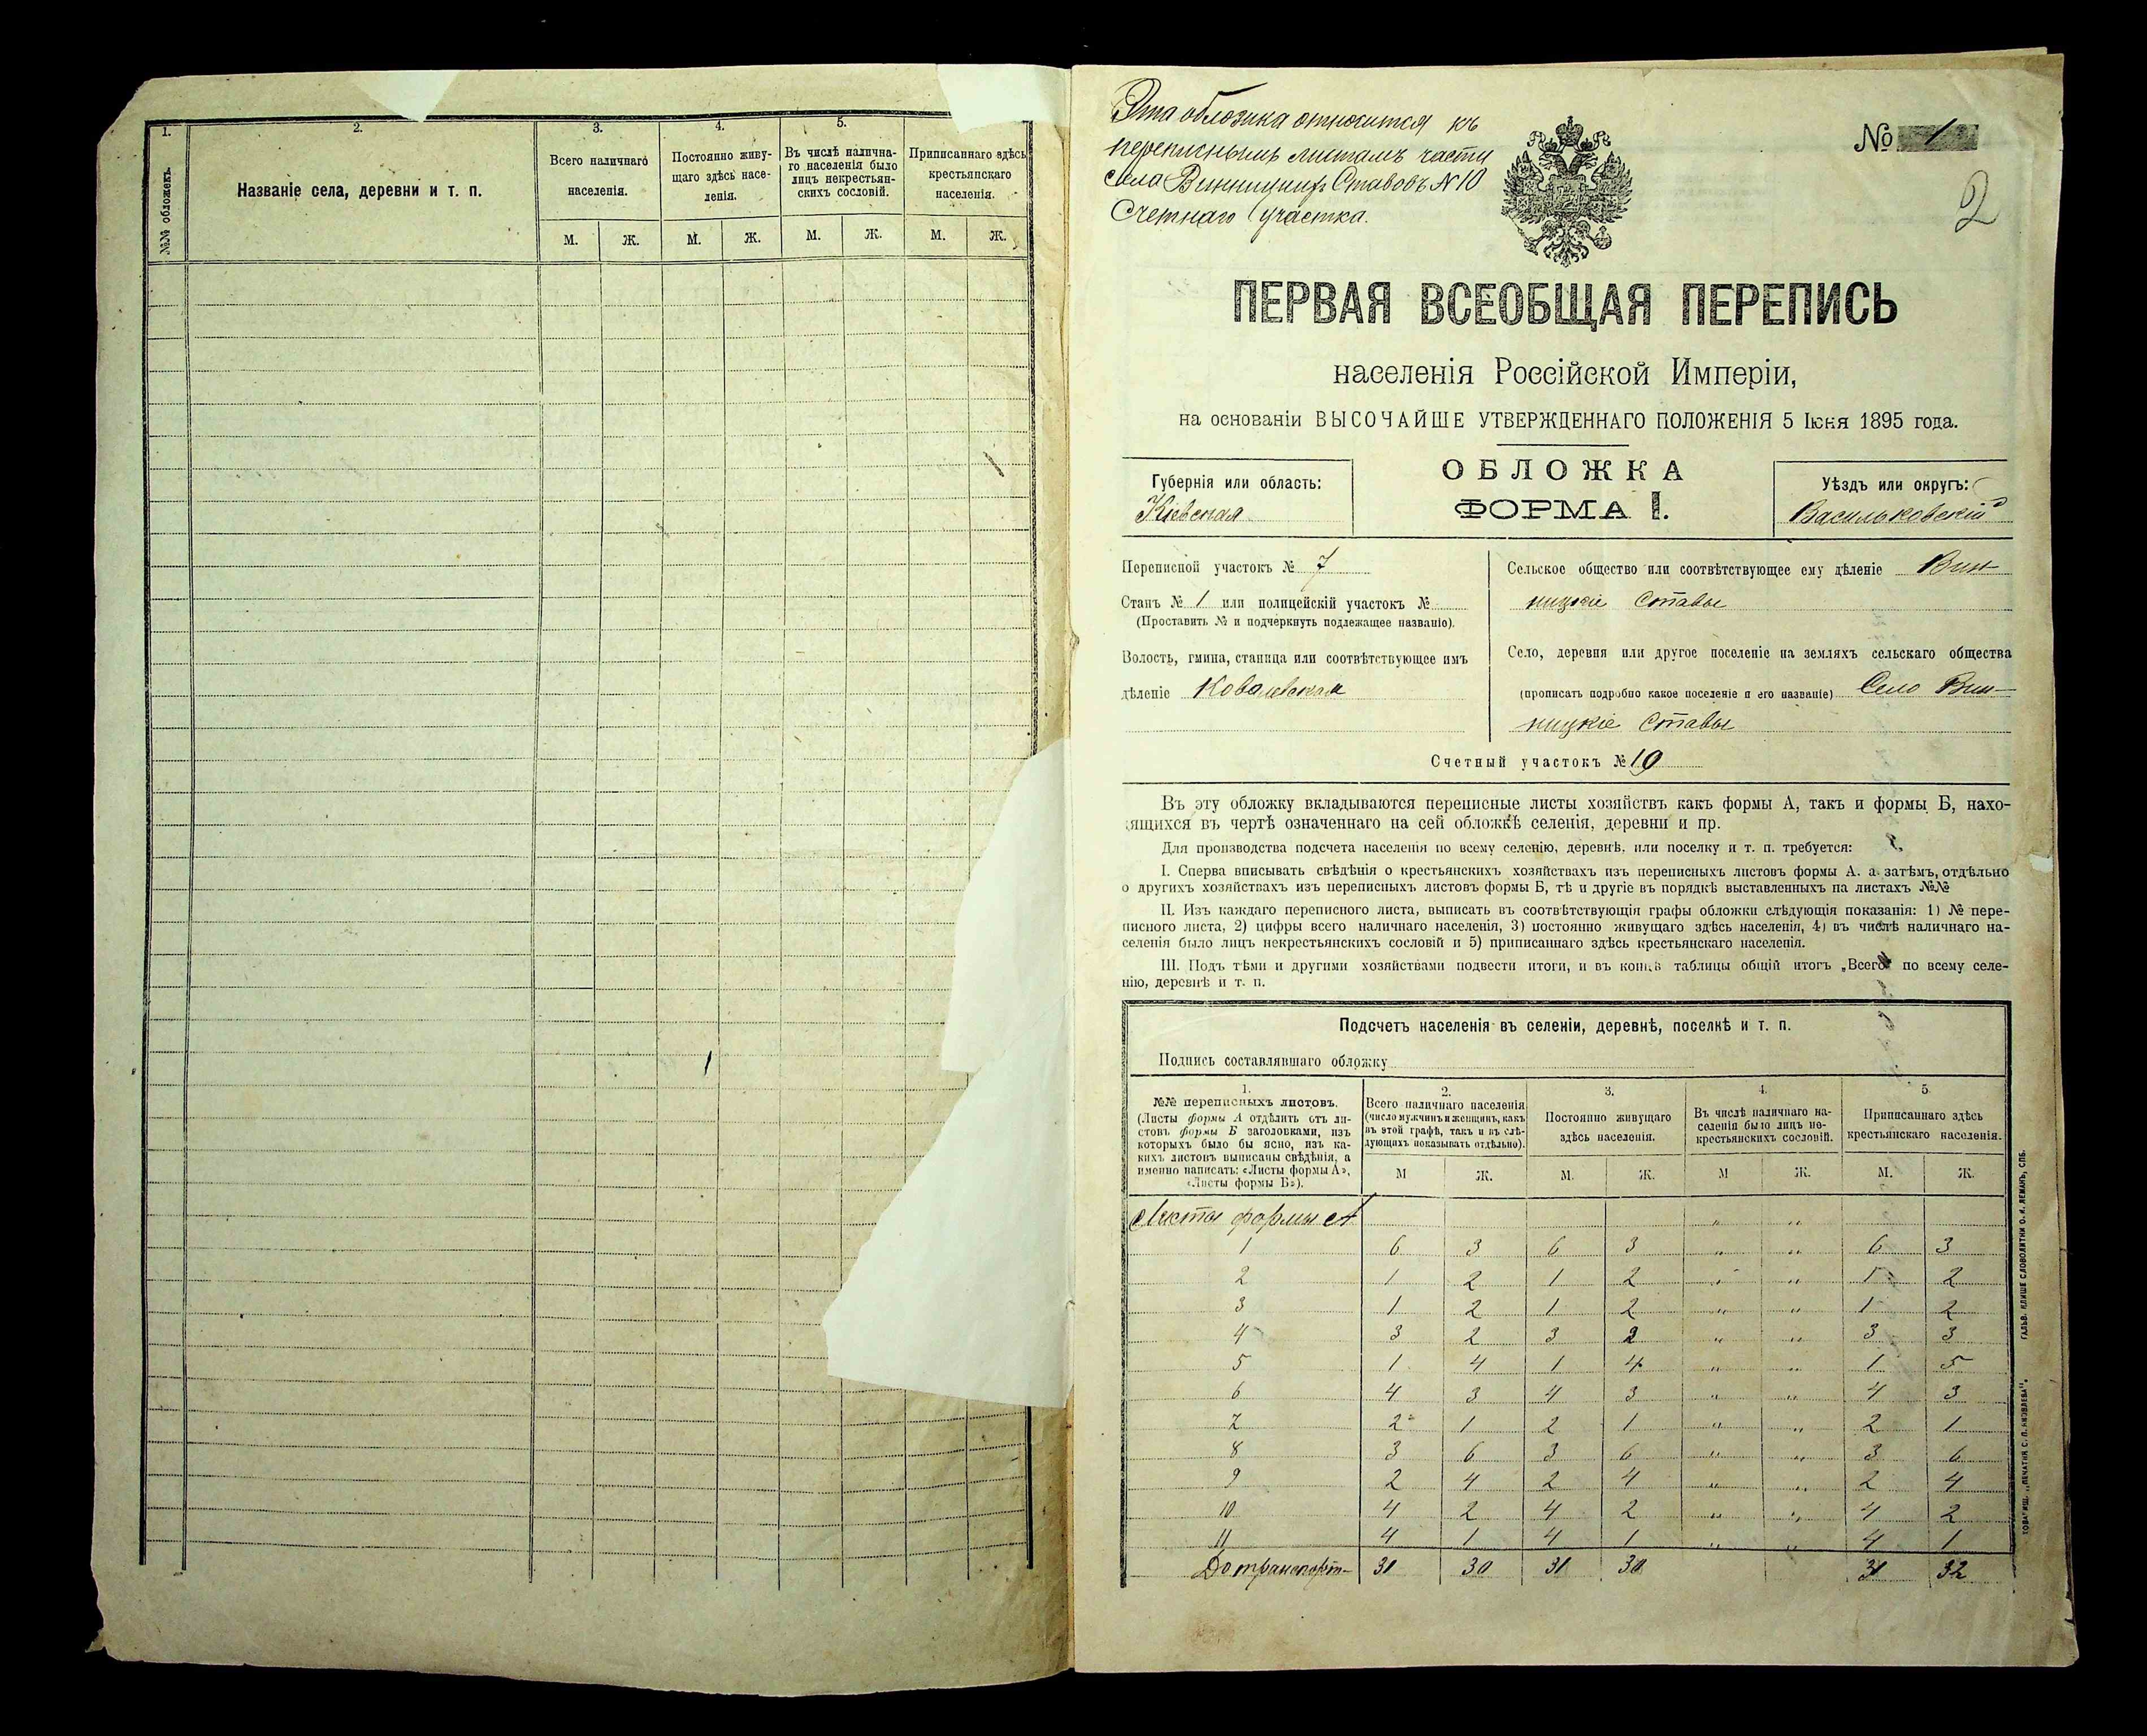 1.
2.
3.
4.
5.
№№ обложекъ.
Названіе села, деревни и т. п.
Всего наличнаго населенія.
Постоянно живущаго здѣсь населенія.
Въ числѣ налична-
го населенія было
лицъ некрестьян-
скихъ сословій.
Приписаннаго здѣсь
крестьянскаго
населенія.
М. Ж. М. Ж. М. Ж. М. Ж.
Эта обложка относится къ
переписнымъ листамъ части
села Винницкихъ Ставовъ № 10
Счетнаго участка.
№ 1
2
ПЕРВАЯ ВСЕОБЩАЯ ПЕРЕПИСЬ
населенія Россійской Имперіи,
на основаніи ВЫСОЧАЙШЕ УТВЕРЖДЕННАГО ПОЛОЖЕНІЯ 5 Іюня 1895 года.
Губернія или область:
Кіевская
ОБЛОЖКА
ФОРМА I.
Уѣздъ или округъ:
Васильковскій
Переписной участокъ № 7
Станъ № 1 или полицейскій участокъ №
(Проставить № и подчеркнуть подлежащее названіе).
Волость, гмина, станица или соотвѣтствующее имъ
дѣленіе Ковалевская
Сельское общество или соотвѣтствующее ему дѣленіе Вин-
ницкіе Ставы
Село, деревня или другое поселеніе на земляхъ сельскаго общества
(прописать подробно какое поселеніе и его названіе) Село Вин-
ницкіе Ставы
Счетный участокъ № 10
Въ эту обложку вкладываются переписные листы хозяйствъ какъ формы А, такъ и формы Б, нахо-
дящихся въ чертѣ означеннаго на сей обложкѣ селенія, деревни и пр.
Для производства подсчета населенія по всему селенію, деревнѣ, или поселку и т. п. требуется:
I. Сперва вписывать свѣдѣнія о крестьянскихъ хозяйствахъ изъ переписныхъ листовъ формы А. а затѣмъ, отдѣльно
о другихъ хозяйствахъ изъ переписныхъ листовъ формы Б, тѣ и другіе въ порядкѣ выставленныхъ на листахъ №№
II. Изъ каждаго переписного листа, выписать въ соотвѣтствующія графы обложки слѣдующія показанія: 1) № пере-
писного листа, 2) цифры всего наличнаго населенія, 3) постоянно живущаго здѣсь населенія, 4) въ числѣ наличнаго на-
селенія было лицъ некрестьянскихъ сословій и 5) приписаннаго здѣсь крестьянскаго населенія.
III. Подъ тѣми и другими хозяйствами подвести итоги, и въ концѣ таблицы общій итогъ „Всего“ по всему селе-
нію, деревнѣ и т. п.
Подсчетъ населенія въ селеніи, деревнѣ, поселкѣ и т. п.
Подпись составлявшаго обложку
1.
№№ переписныхъ листовъ.
(Листы формы А отдѣлить отъ ли-
стовъ формы Б заголовками, изъ
которыхъ было бы ясно, изъ ка-
кихъ листовъ выписаны свѣдѣнія, а
именно написать: «Листы формы А»,
«Листы формы Б»).
2.
Всего наличнаго населенія
(число мужчинъ и женщинъ, какъ
въ этой графѣ, такъ и въ слѣ-
дующихъ показывать отдѣльно).
3.
Постоянно живущаго
здѣсь населенія.
4.
Въ числѣ наличнаго на-
селенія было лицъ не-
крестьянскихъ сословій.
5
Приписаннаго здѣсь
крестьянскаго населенія.
М Ж. М. Ж. М Ж. М. Ж.
Листы формы А " "
1 6 3 6 3 " " 6 3
2 1 2 1 2 " " 1 2
3 1 2 1 2 " " 1 2
4 3 2 3 2 " " 3 3
5 1 4 1 4 " " 1 5
6 4 3 4 3 " " 4 3
7 2 1 2 1 " " 2 1
8 3 6 3 6 " " 3 6
9 2 4 2 4 " " 2 4
10 4 2 4 2 " " 4 2
11 4 1 4 1 " " 4 1
До транспорт- 31 30 31 30 31 32
ГАЛЬВ. КЛИШЕ СЛОВОЛИТНИ О. И. ЛЕМАНЪ, СПБ.
ТОВАРИЩ. „ПЕЧАТНЯ С. П. ЯКОВЛЕВА“.